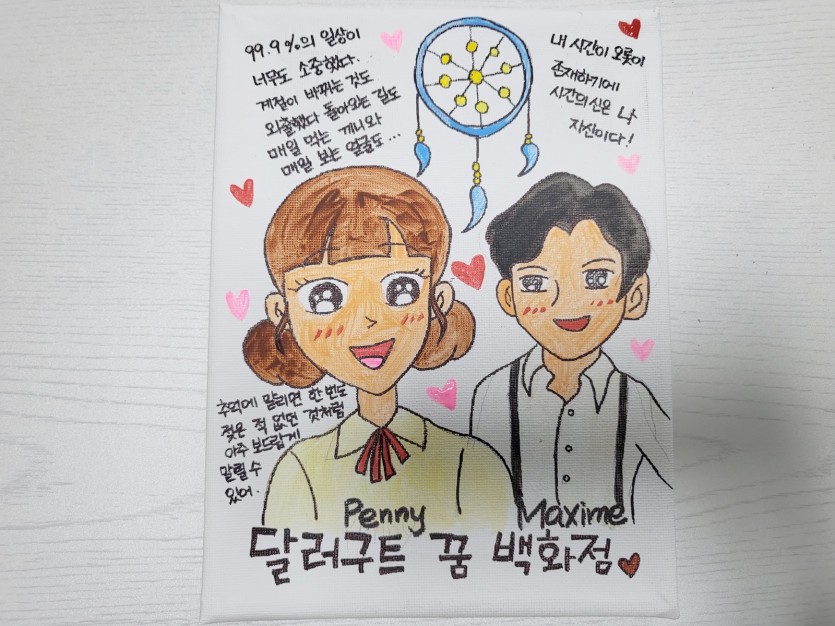 99.9%의 일상이
너무도 소중했다.
계절이 바뀌는 것도
외출했다 돌아오는 길도
매일 먹는 끼니와
매일 보는 얼굴도...
내 시간이 오롯이
존재하기에
시간의 신은 나
자신이다!
추억에 말리면 한 번도
젖은 적 없던 것처럼
아주 보드랍게
말릴 수
있어.
Penny
Maxime
달러구트 꿈 백화점